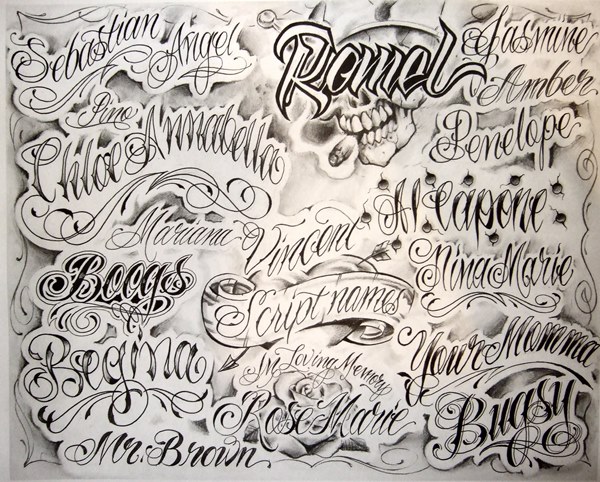 Sebastian Angel
Pino
Chloe Annabella
Mariana
Boogs
Regina
Mr. Brown
Ramel
Vincent
Script names
In Loving Memory
Rose Marie
Jasmine
Amber
Penelope
Al Capone
Nina Marie
Your Momma
Bugsy